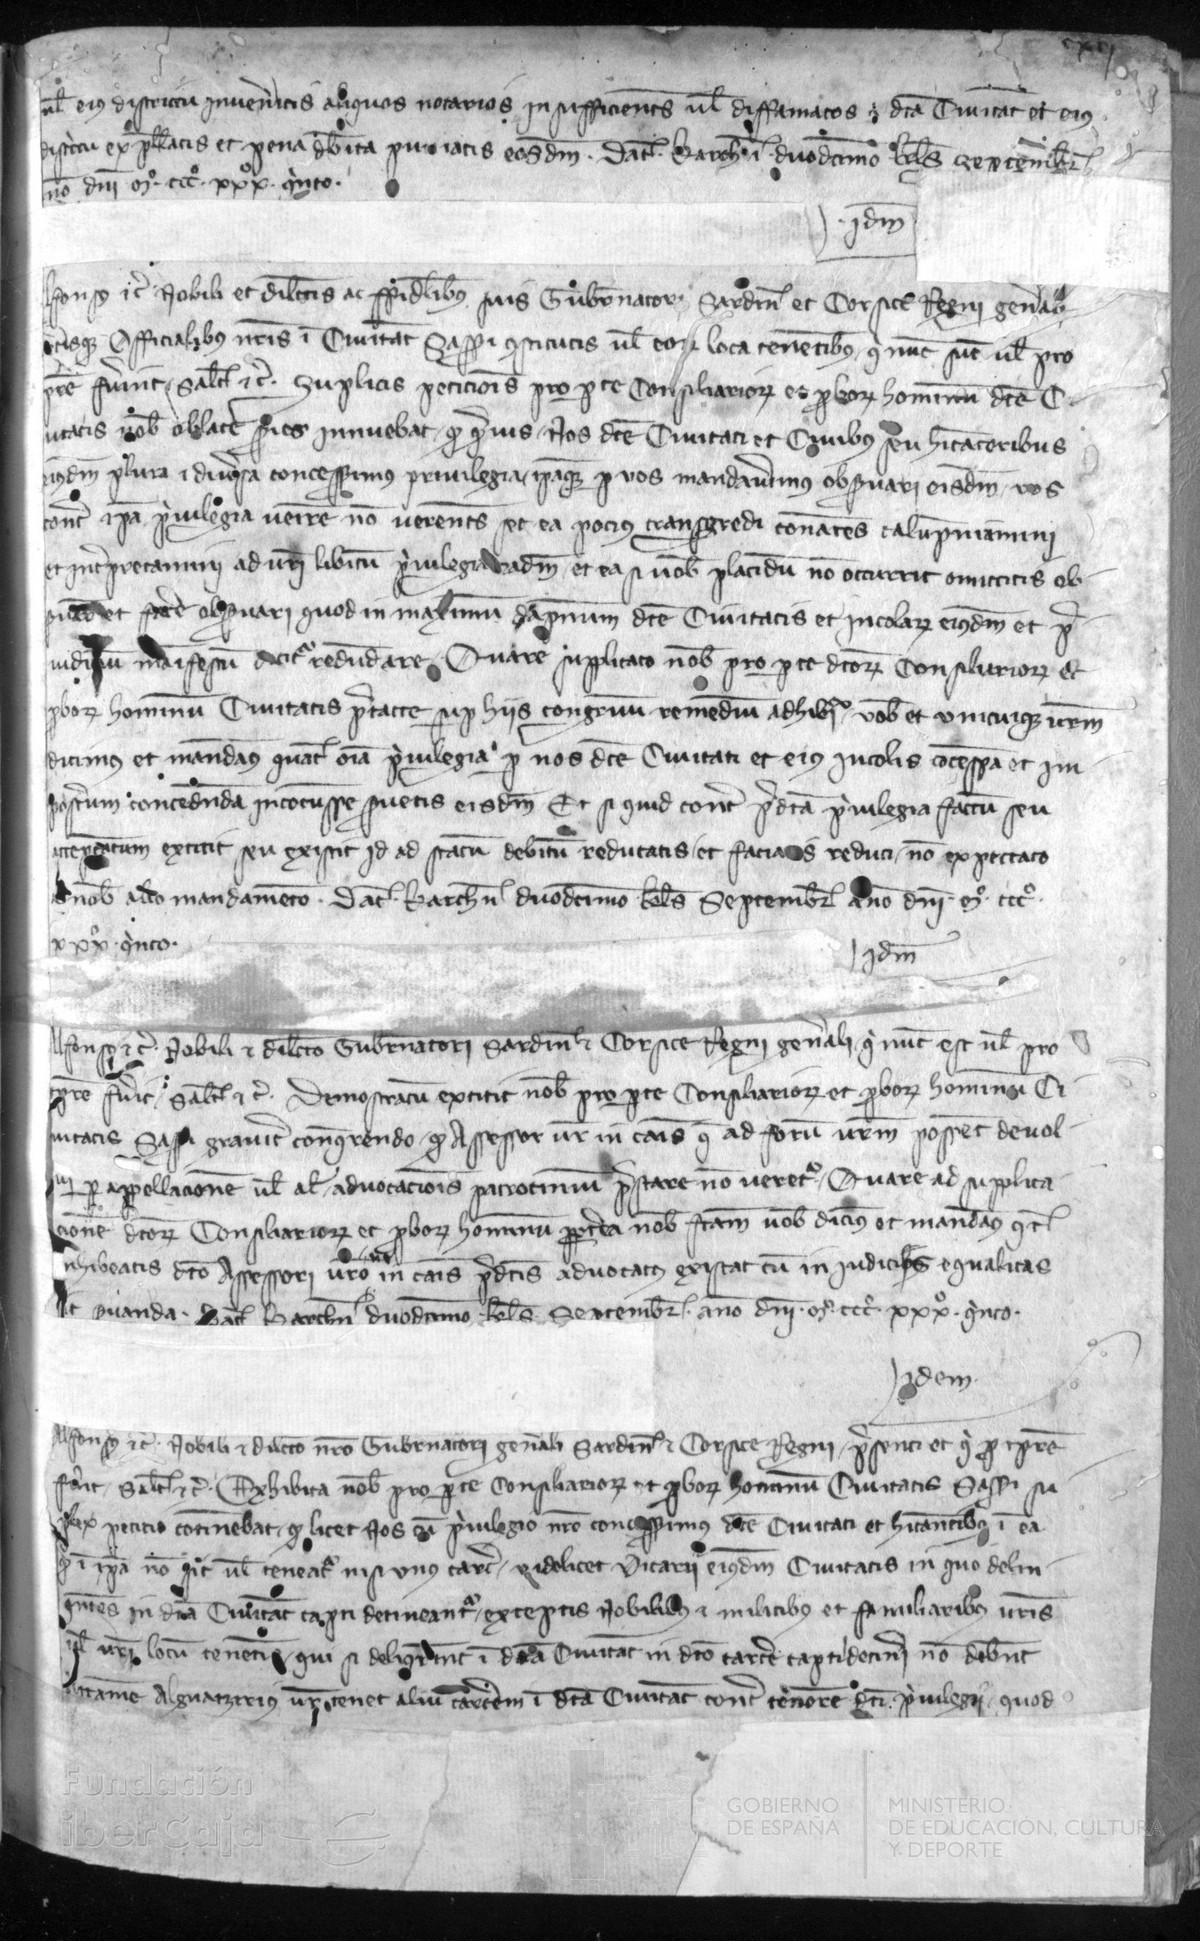 ul eius districtu inveneritis aliquos notarios insufficientes ul diffamatos i dcta Civitat et eius
districtu ex pellatis et pena debita puniatis eosdm. Dat Barchn duodecimo kls Septembr
no dni mº cccº xxxº qinto.
Idm
lfonsus &c Nobili et dilectis ac fidelibus suis Gubernatori Sardin et Corsice Regni generali
Officialibus nris i Civitat Sassi constitutis ul eor loca tenentibus q nunc sut ul pro
pre fuerint Salt &c. Suplicis peticiois pro pte Consiliarior et pbor hominum dcte C
vitatis nob oblate series innuebat q pus Nos dcte Civitati et Civibus seu hitatoribus
eiusdm plura i diversa concessimus privilegia ipaq p vos mandaverimus observari eisdm vos
contr ipa privilegia venire no verentes set ea pocius transgredi conantes calupniamini
et interpretamini ad vri libitu privilegia eadm et ea si vob placidu no occurrit omittitis ob
et facere observari quod in maximu dapnum dcte Civitatis et incolar eiusdm et p
iudiciu manifestu dicit redundare. Quare supplicato nob pro pte dctor Consiliarior et
pbor hominu Civitatis ptacte sup hiis congruu remediu adhiberi vob et unicuiq vrm
dicimus et mandamus quat oia privilegia p nos dcte Civitati et eius incolis concessa et im
posterum concedenda inconcusse servetis eisdm Et si quid contr pdcta privilegia factu seu
acceptatum extitit seu existit id ad statu debitu reducatis et faciatis reduci no expectato
nob alio mandameto. Dat Barchn duodecimo kls Septembr ano dni mº cccº
xxxº qinto.
Idm
Alfonsus &c Nobili & dilecto Gubernatori Sardin & Corsice Regni generali q nunc est ul pro
tpre fuerit Salt &c. Demostratu extitit nob pro pte Consiliarior et pbor hominu Ci
vitatis Sassi graviter conquerendo q Assessor vr in cais q ad foru vrm posset devol
vi p appellacione ul al advocaciois patrociniu pstare no veret. Quare ad supplica
cione dctor Consiliarior et pbor hominu propterea nob fctam vob dicimus et mandamus qt
inhibeatis dcto Assessori vro ne in cais pdctis advocatus existat cu in iudiciis equalitas
sit servanda. Dat Barchn duodecimo kls Septembr ano dni mº cccº xxxº qinto.
Idem
Alfonsus &c Nobili & dilecto nro Gubernatori generali Sardin & Corsice Regni psenti et q p tpre
fuerit Salt &c. Exhibita nob pro pte Consiliarior et pbor hominu Civitatis Sassi su
plex peticio continebat q licet Nos cu privilegio nro concessimus dcte Civitati et hitantibus i ea
q i ipa no sit ul teneat nisi unus carcer videlicet Vicarii eiusdm Civitatis in quo delin
quentes in dcta Civitat capti detineant exceptis Nobilibus & militibus et familiaribus vris
ul vri locu tenentis qui si deliquerint i dcta Civitat in dcto carcere capti detineri no debent
attame Alguatzirius vr tenet aliu carcerem i dcta Civitat contr tenore dcti privilegii quod
Fundación
iberCaja
GOBIERNO
DE ESPAÑA
MINISTERIO
DE EDUCACIÓN, CULTURA
Y DEPORTE